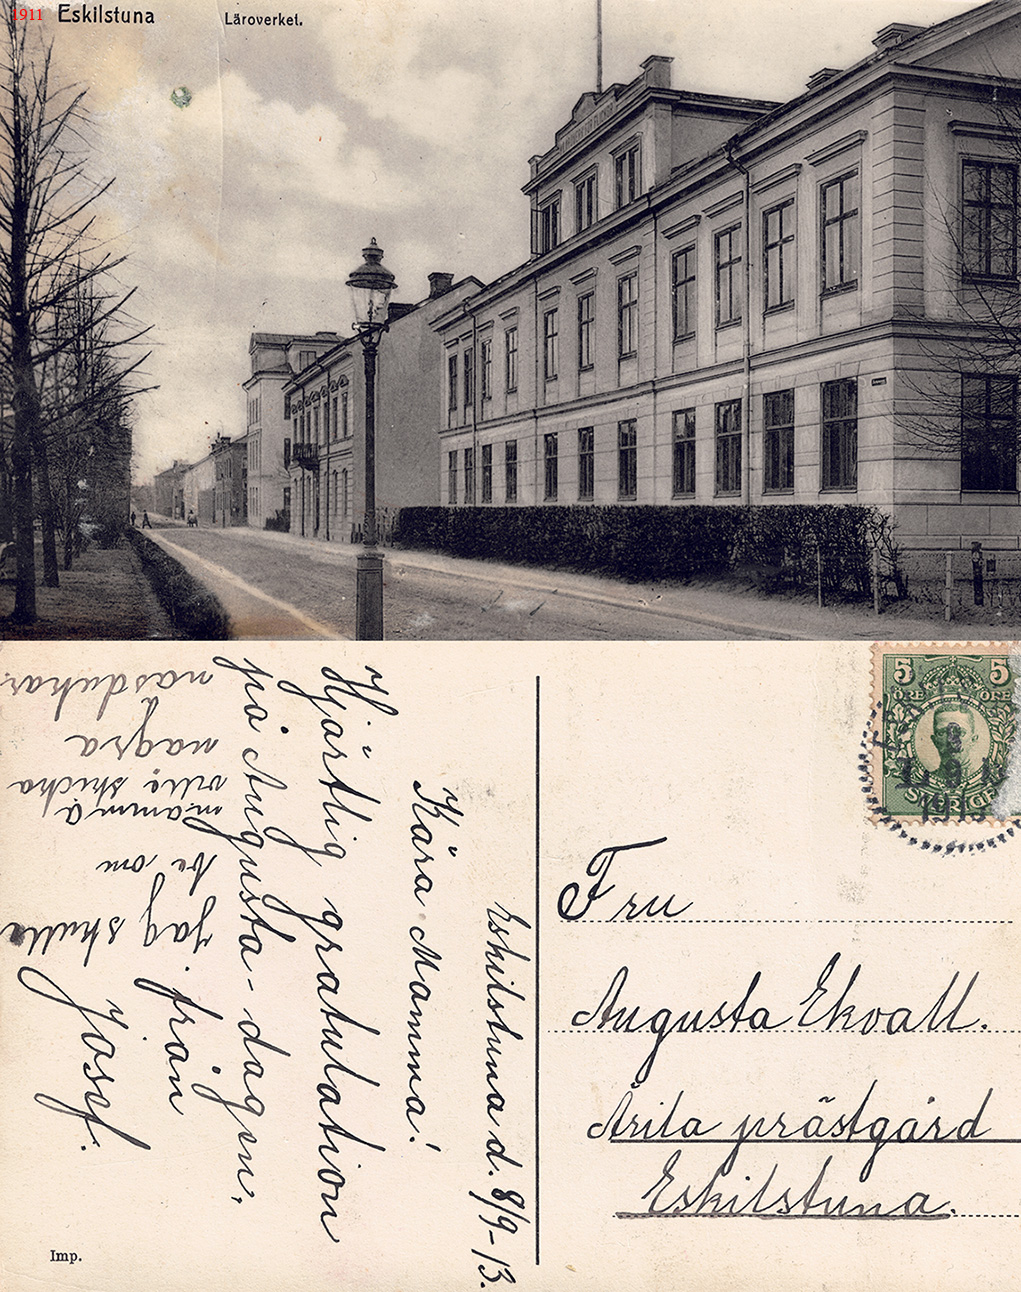 1911
Eskilstuna
Läroverket.
Eskilstuna d. 8/9-13.
Kära Mamma!
Hjärtlig gratulation
på Augusta-dagen.
från
Josef.
Jag skulle
be om
mamma
ville skicka
några
näsdukar
Imp.
5 5
ÖRE ÖRE
SVERIGE
Fru
Augusta Ekvall.
Ärila prästgård
Eskilstuna.